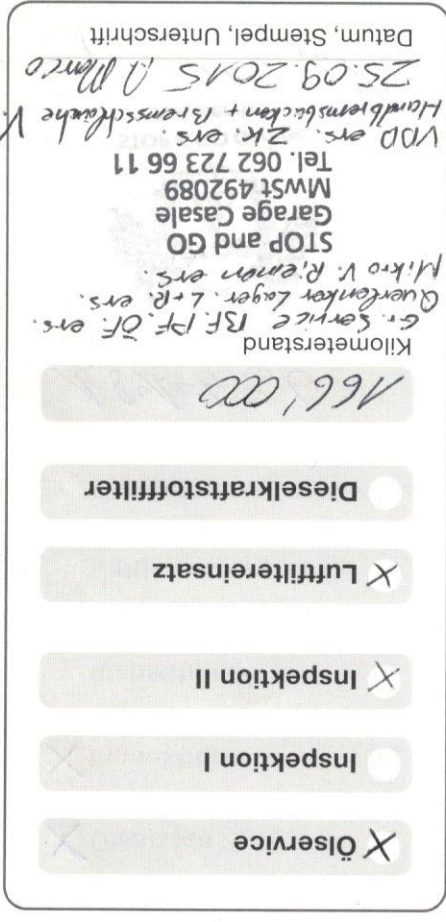 X Ölservice
Inspektion I
X Inspektion II
X Luftfiltereinsatz
Dieselkraftstofffilter
166'000
Kilometerstand
Gr. Service BF. PF. ÖF. ers.
Querlenker Lager. L+R. ers.
Mikro V. Riemen ers.
STOP and GO
Garage Casale
MwSt 492089
Tel. 062 723 66 11
VDD ers. Zk. ers.
Handbremsbacken + Bremsschläuche V.
25.09.2015
Datum, Stempel, Unterschrift